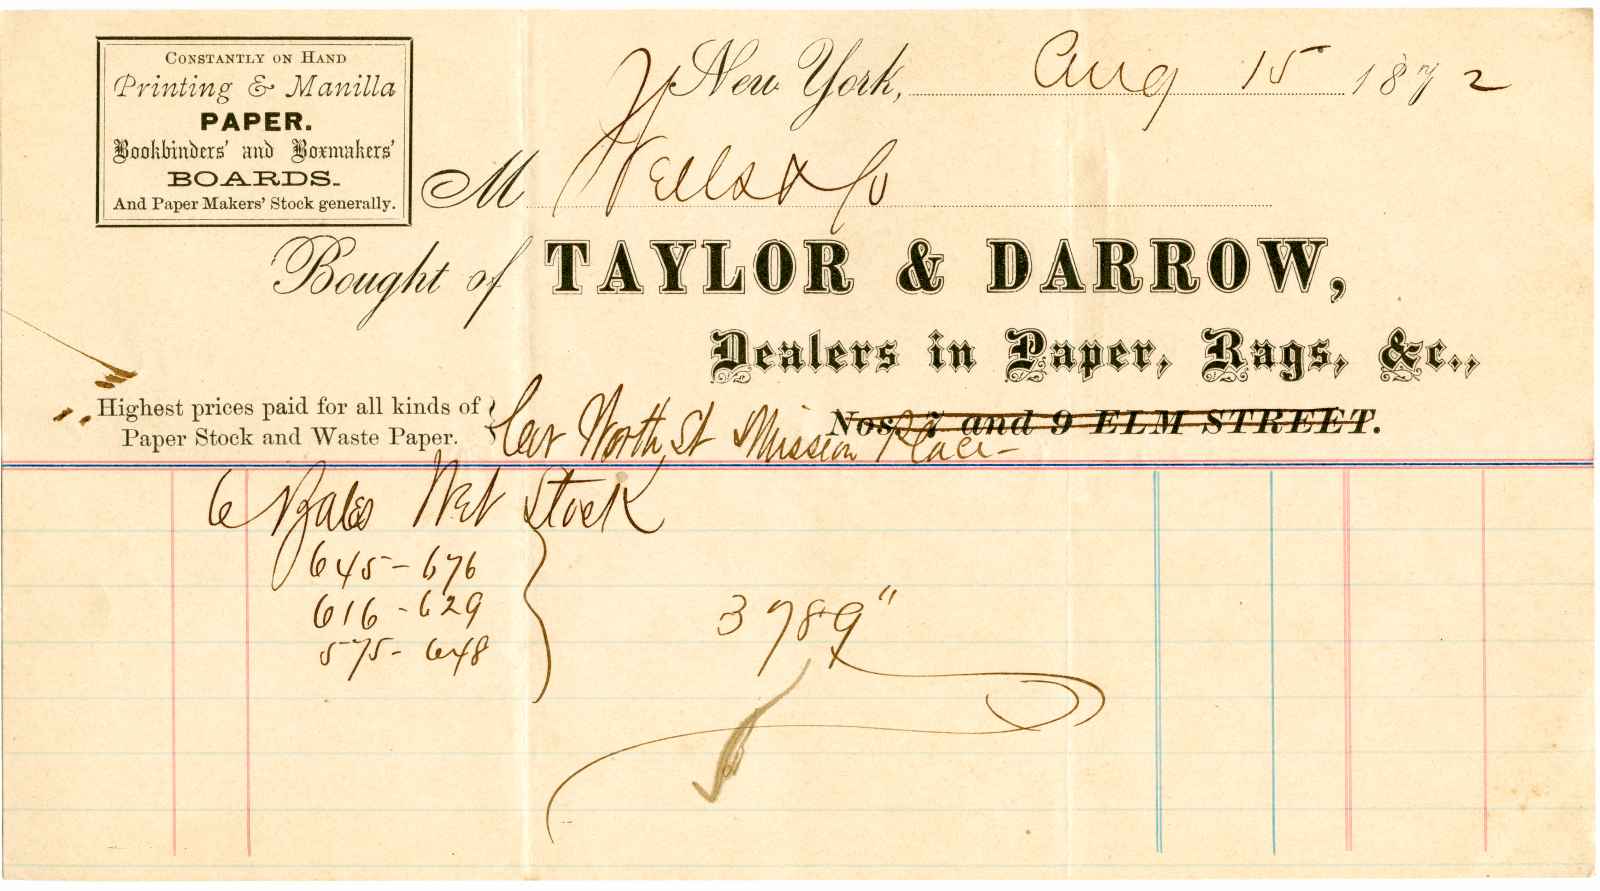 CONSTANTLY ON HAND
Printing & Manilla
PAPER.
Bookbinders' and Boxmakers'
BOARDS.
And Paper Makers' Stock generally.
New York, Aug 15 1872
M Wells & Co
Bought of TAYLOR & DARROW,
Dealers in Paper, Rags, &c.,
Highest prices paid for all kinds of
Paper Stock and Waste Paper.
Nos. 7 and 9 ELM STREET.
Cor Worth St Mission Place
6 Bales Wet Stock
645 - 676
616 - 629
575 - 648
3789"